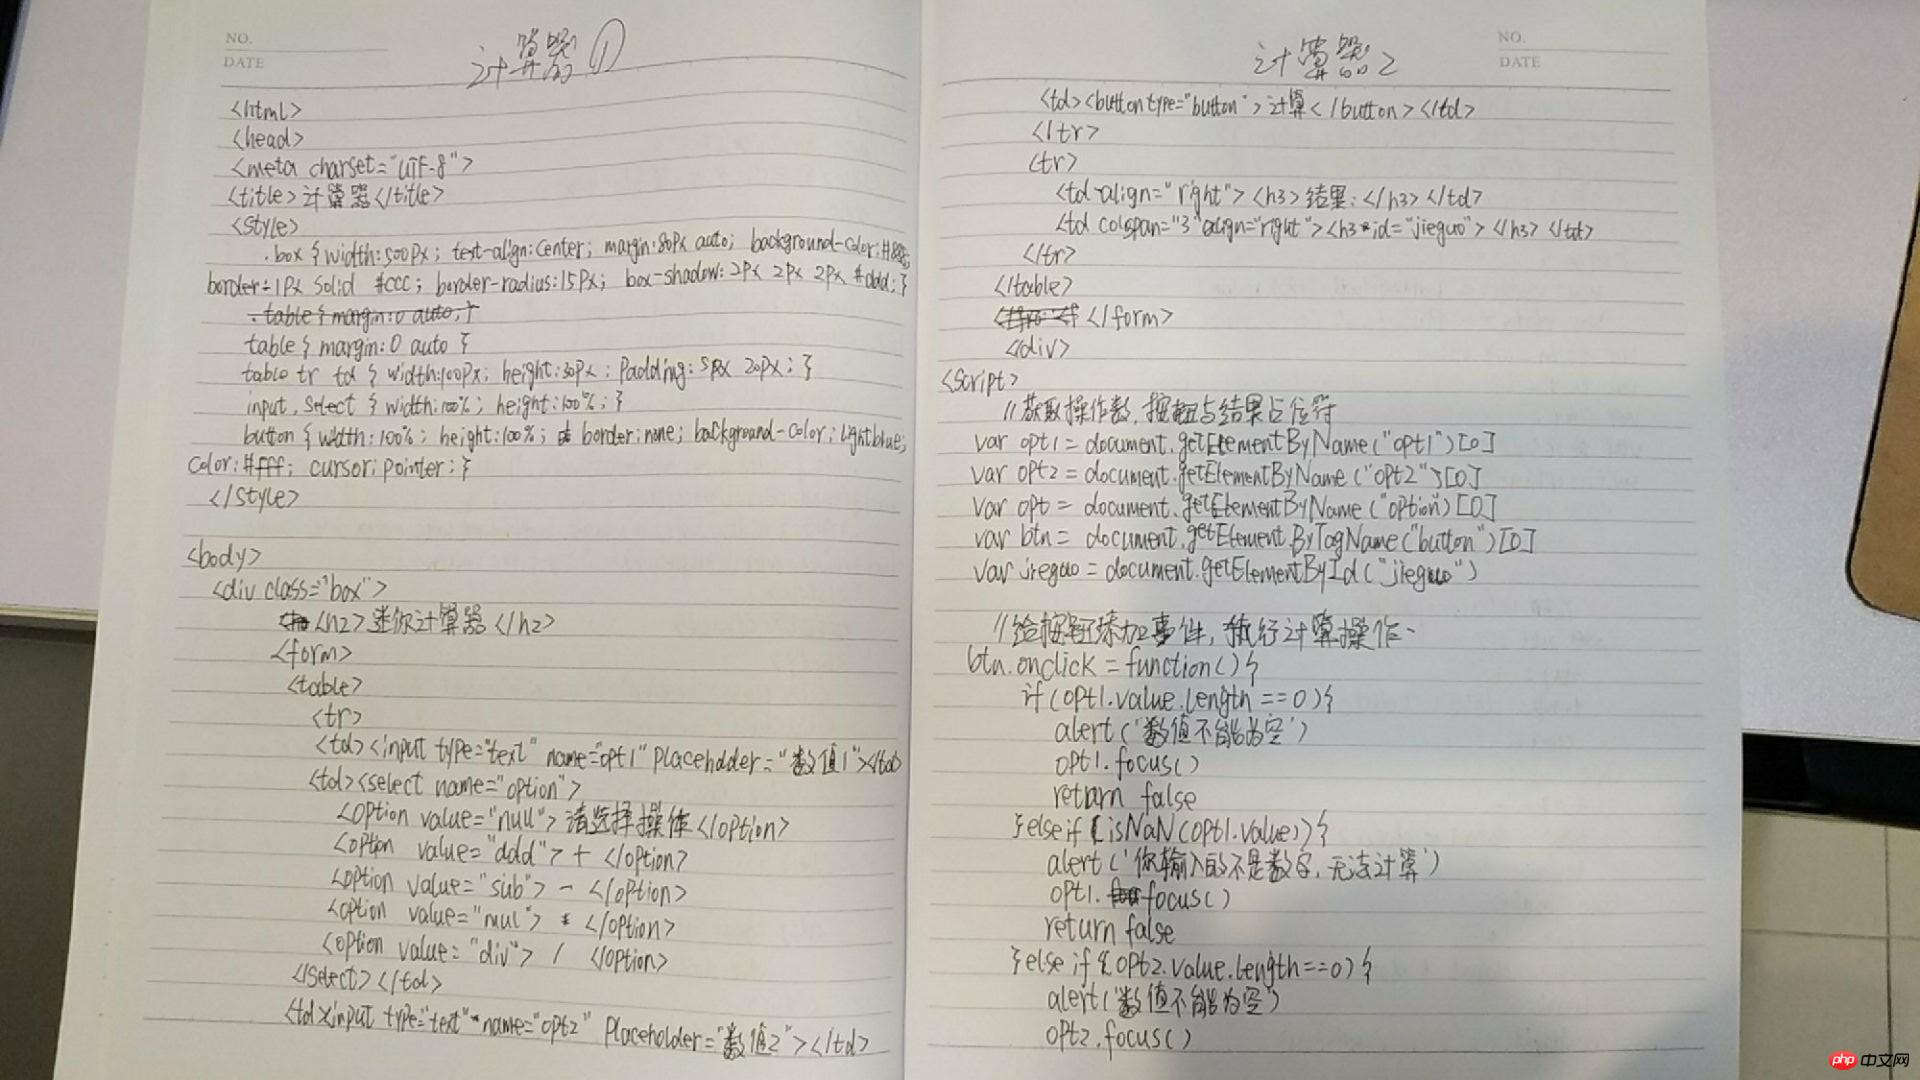 NO.
DATE
计算器①
<html>
<head>
<meta charset="UTF-8">
<title>计算器</title>
<style>
.box{width:500px; text-align:center; margin:80px auto; background-color:#888;
border=1px solid #ccc; border-radius:15px; box-shadow:2px 2px 2px #ddd;}
.table{margin:0 auto;}
table{margin:0 auto}
table tr td {width:100px; height:30px; Padding:5px 20px;}
input,select {width:100%; height:100%;}
button{width:100%; height:100%; border:none; background-color:lightblue;
color:#fff; cursor:pointer;}
</style>
<body>
<div class="box">
<h2>迷你计算器</h2>
<form>
<table>
<tr>
<td><input type="text" name="opt1" placeholder="数值1"></td>
<td><select name="option">
<option value="null">请选择操作</option>
<option value="ddd">+</option>
<option value="sub">-</option>
<option value="mul">*</option>
<option value="div">/ </option>
</select></td>
<td><input type="text" name="opt2" placeholder="数值2"></td>
计算器2
NO.
DATE
<td><button type="button">计算</button></td>
</tr>
<tr>
<td align="right"><h3>结果:</h3></td>
<td colspan="3" align="right"><h3 id="jieguo"></h3></td>
</tr>
</table>
</form>
</div>
<script>
//获取操作数,按钮与结果占位符
var opt1 = document.getElementByName("opt1")[0]
var opt2 = document.getElementByName("opt2")[0]
var opt = document.getElementByName("option")[0]
var btn = document.getElement.ByTagName("button")[0]
var jieguo = document.getElementById("jieguo")
//给按钮添加事件,执行计算操作.
btn.onclick = function(){
if(opt1.value.length==0){
alert('数值不能为空')
opt1.focus()
return false
}else if (isNaN(opt1.value)){
alert('你输入的不是数字,无法计算')
opt1.focus()
return false
}else if (opt2.value.length==0){
alert('数值不能为空')
opt2.focus()
php中文网